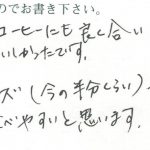 のでお書き下さい。
コーヒーにも良く合い
いしかったです。
ズ(今の半分くらい)、
べやすいと思います。